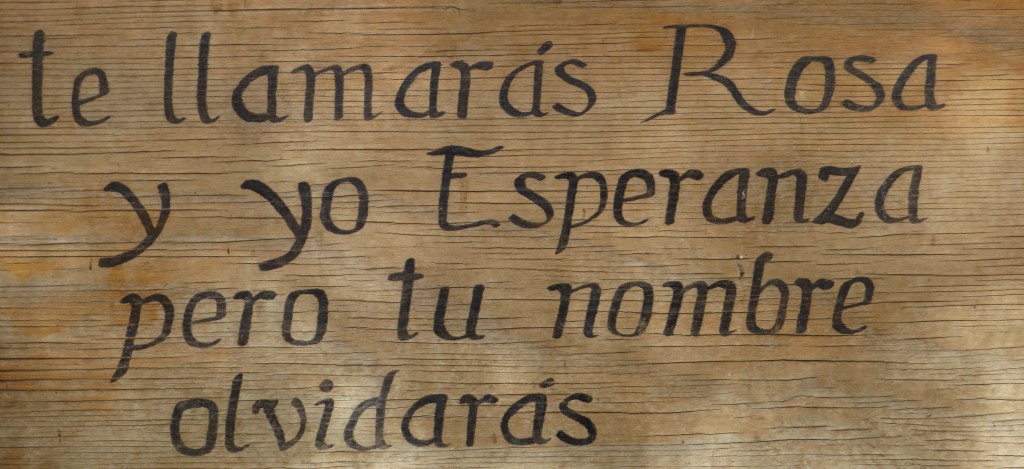 te llamarás Rosa
y yo Esperanza
pero tu nombre
olvidarás